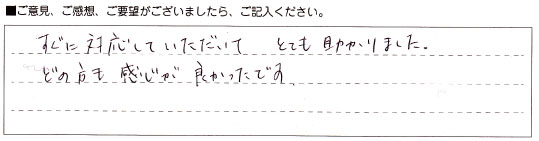 ■ご意見、ご感想、ご要望がございましたら、ご記入ください。
すぐに対応していただいて とても助かりました。
どの方も感じが良かったです。